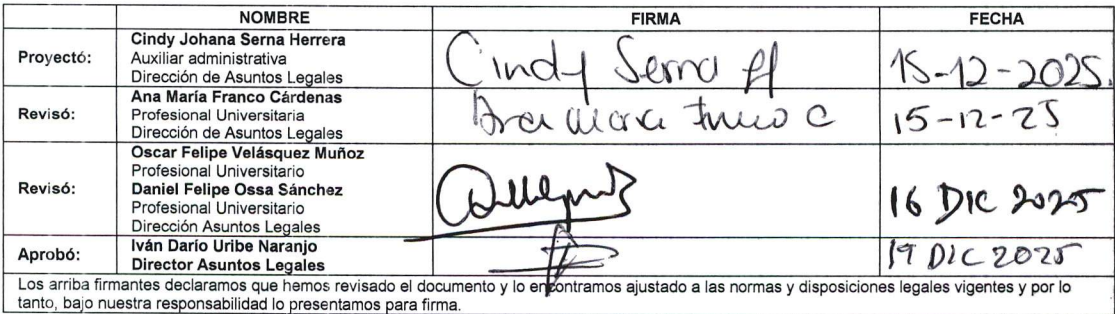 NOMBRE FIRMA FECHA
Proyectó:
Cindy Johana Serna Herrera
Auxiliar administrativa
Dirección de Asuntos Legales
Cindy Serna H
15-12-2025.
Revisó:
Ana María Franco Cárdenas
Profesional Universitaria
Dirección de Asuntos Legales
Ana Maria Franco C
15-12-25
Revisó:
Oscar Felipe Velásquez Muñoz
Profesional Universitario
Daniel Felipe Ossa Sánchez
Profesional Universitario
Dirección Asuntos Legales
16 DIC 2025
Aprobó:
Iván Darío Uribe Naranjo
Director Asuntos Legales
19 DIC 2025
Los arriba firmantes declaramos que hemos revisado el documento y lo encontramos ajustado a las normas y disposiciones legales vigentes y por lo
tanto, bajo nuestra responsabilidad lo presentamos para firma.